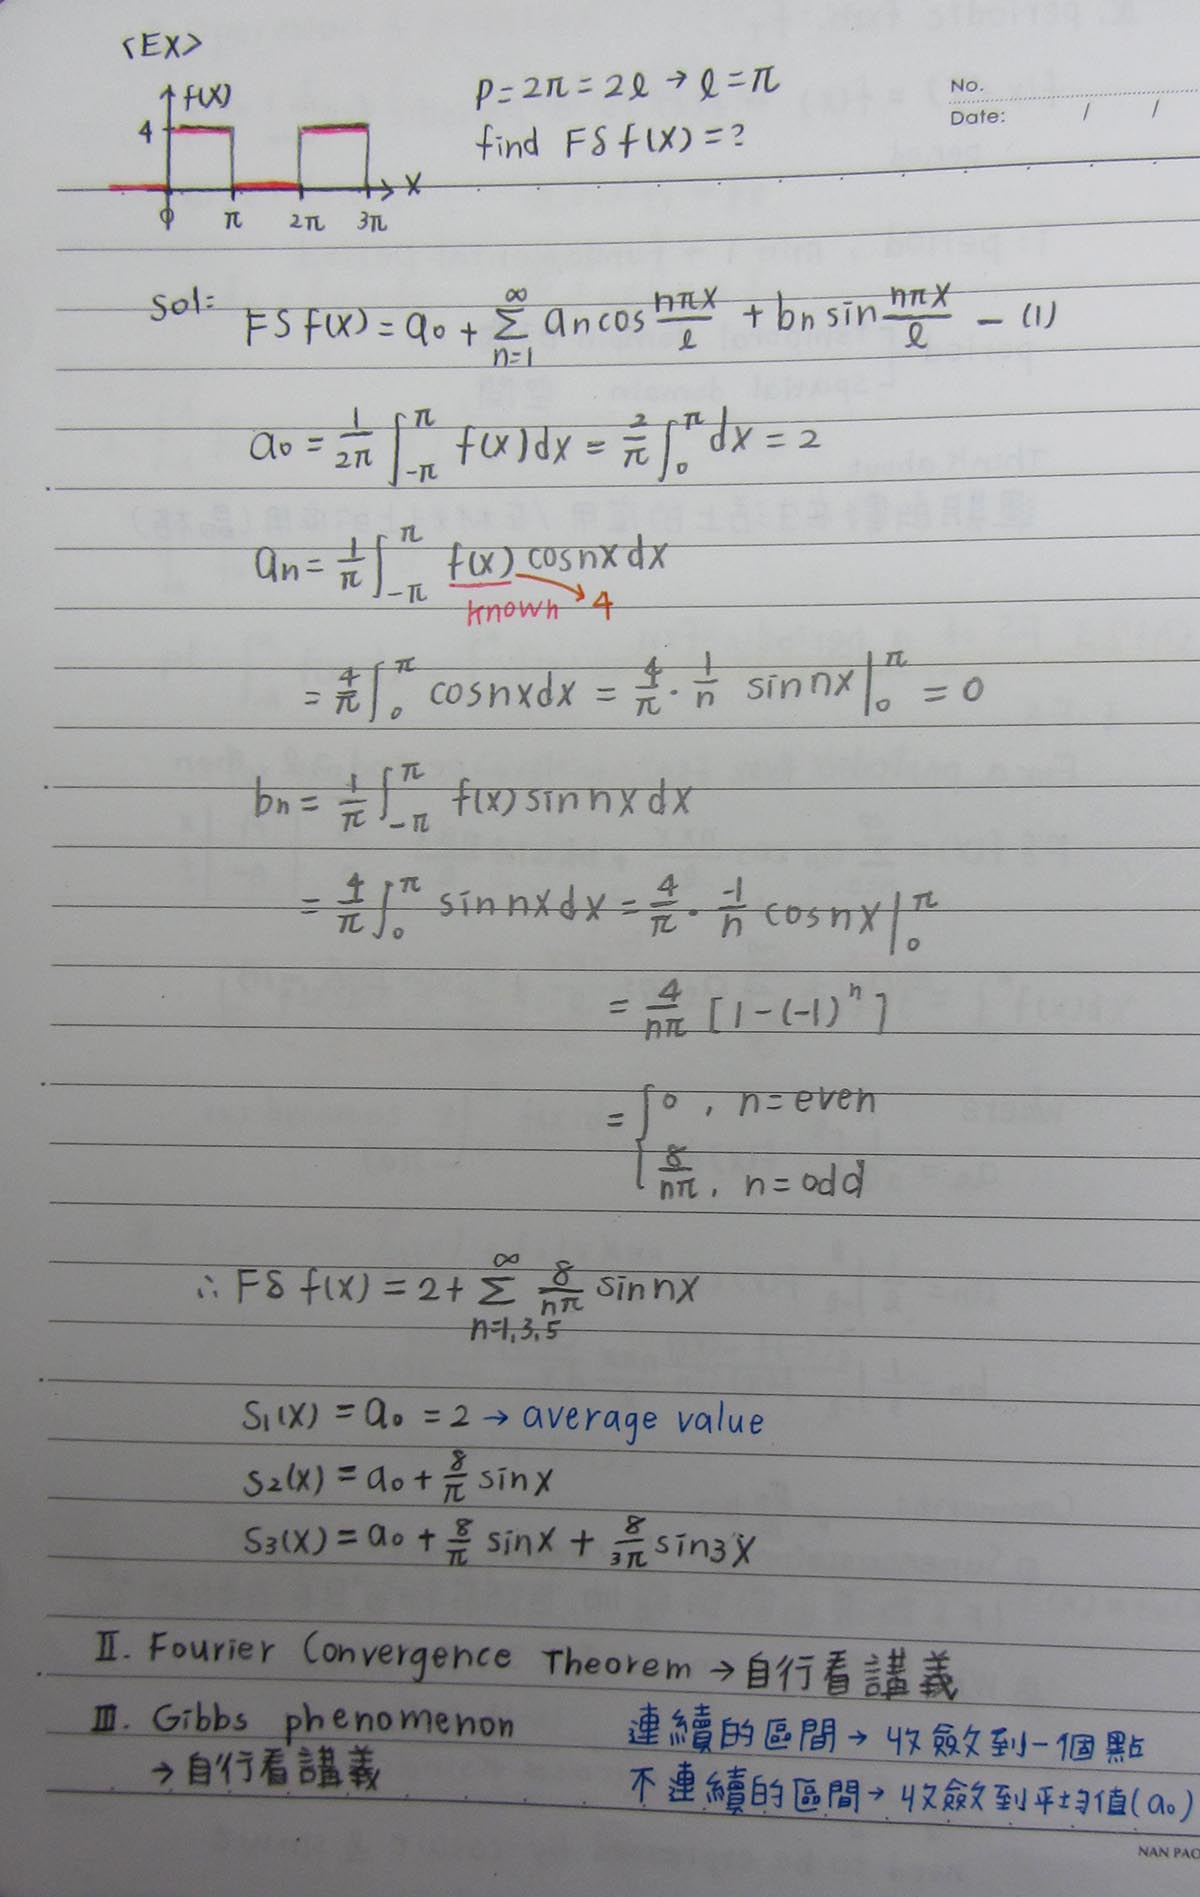 <EX>
f(x)
4
0 π 2π 3π x
P=2π=2l→l=π
find FS f(x)=?
No.
Date: / /
Sol: FS f(x) = a₀ + ∑_{n=1}^{∞} aₙcos nπx/l + bₙ sin nπx/l — (1)
a₀ = 1/2π ∫_{-π}^{π} f(x)dx = 2/π ∫_0^π dx = 2
aₙ = 1/π ∫_{-π}^{π} f(x) cosnx dx
known → 4
= 4/π ∫_0^π cosnxdx = 4/π · 1/n sin nx |_0^π = 0
bₙ = 1/π ∫_{-π}^{π} f(x) sin nx dx
= 4/π ∫_0^π sin nx dx = 4/π · -1/n cosnx |_0^π
= 4/nπ [1-(-1)ⁿ]
= { 0 , n=even
8/nπ , n=odd
∴ FS f(x) = 2 + ∑_{n=1,3,5}^{∞} 8/nπ sin nx
S₁(x) = a₀ = 2 → average value
S₂(x) = a₀ + 8/π sinx
S₃(x) = a₀ + 8/π sinx + 8/3π sin3x
II. Fourier Convergence Theorem → 自行看講義
III. Gibbs phenomenon
→ 自行看講義
連續的區間 → 收斂到一個點
不連續的區間 → 收斂到平均值(a₀)
NAN PAO